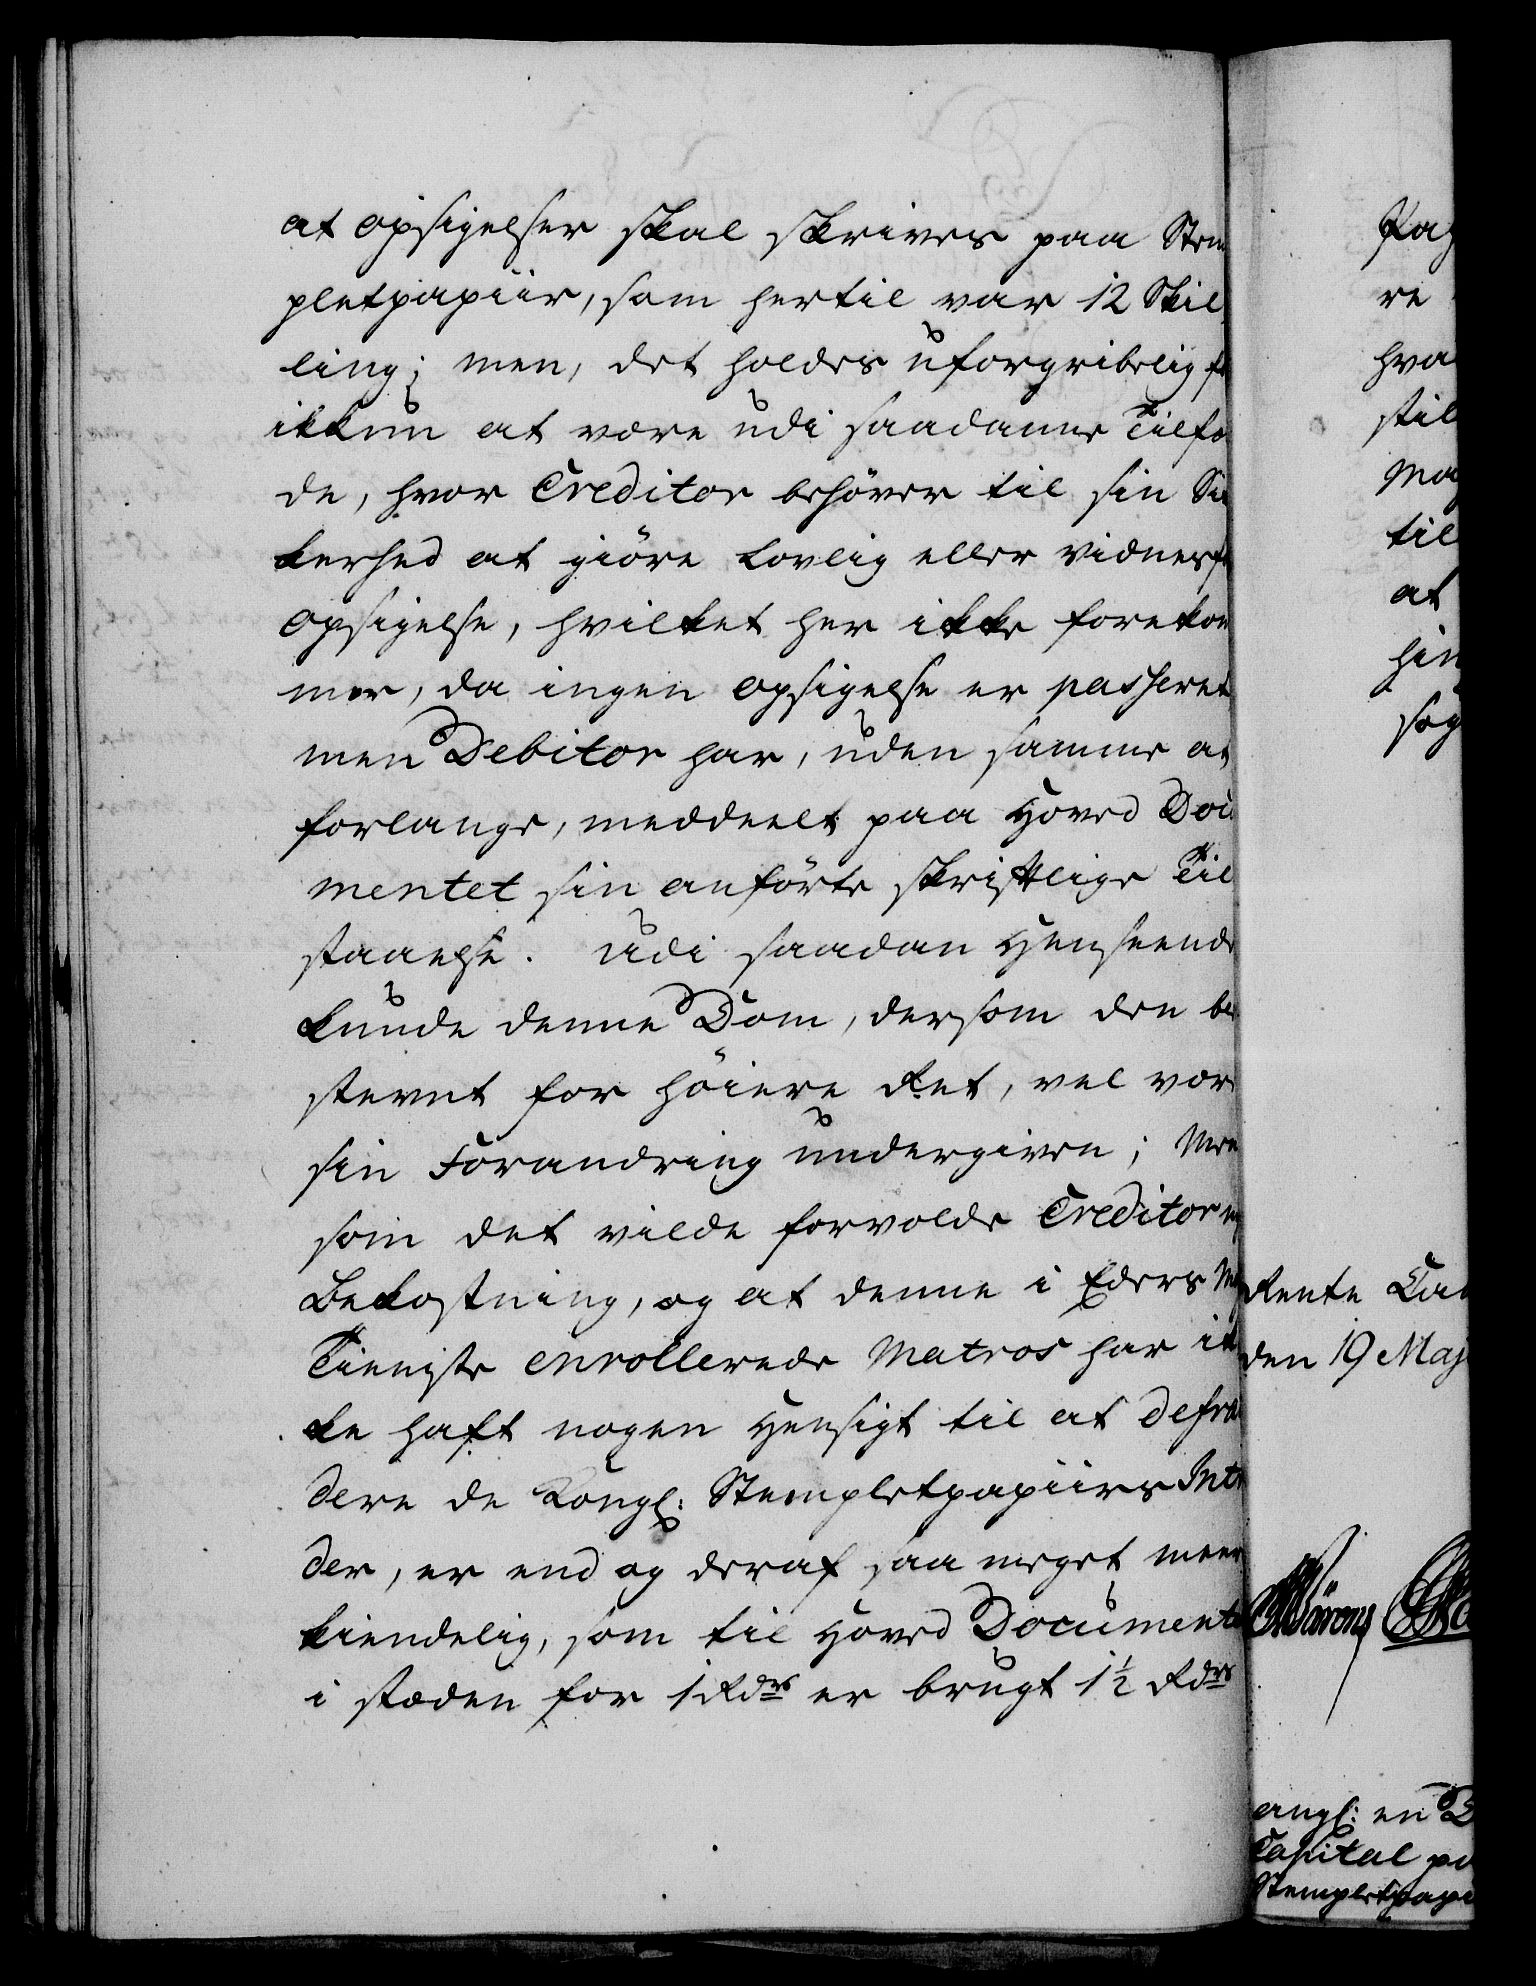 at opsigelser skal skrives paa Stem
pletpapiir, som hertil var 12 Skil,
ling; men, det holdes uforgribelig f
ikkun at være udi saadanne Tilfæ
de, hvor Creditor behöver til sin Sik
kerhed at giöre Lovlig eller vidnesf
opsigelse, hvilket her ikke forekom
mer, da ingen opsigelse er passeret
men Debitor har, uden samme at
forlange, meddeelt paa Hoved Docu
mentet sin anförte skriftlige Til
staaelse. Udi saadan Henseende
kunde denne Dom, dersom den be
stevnt for höiere Ret, vel vær
sin Forandring undergiven; Men
som det vilde forvolde Creditor ny
Bekostning, og at denne i Eders May
Tieniste enrollerede Matros har ik
ke haft nogen Hensigt til at defrau
dere de Kongl: Stempletpapiirs Intr
der, er end og deraf saa meget meer
kiendelig, som til Hoved Documente
i stæden for 1 Rdrs er brugt 1½ Rdrs
Pag
re
hva
stil
May
til
at
hin
sag
Rente Cam
den 19 Maj
angl: en D
Capital pa
Stempletpapi